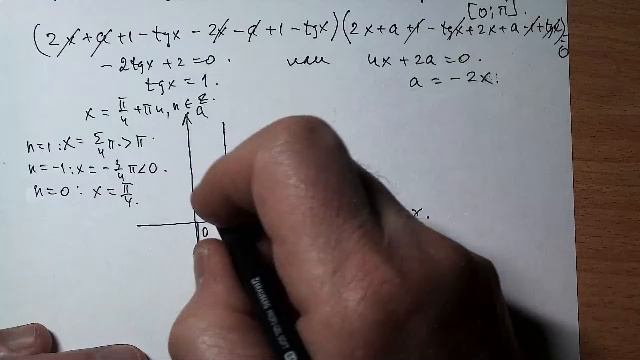 [0; π].
(2x + a + 1 - tgx - 2x - a + 1 - tgx)(2x + a + 1 - tgx + 2x + a - 1 + tgx) = 0
-2tgx + 2 = 0. или 4x + 2a = 0.
tgx = 1. a = -2x.
x = π/4 + πn, n ∈ Z.
a
n=1: x = 5/4 π > π
n=-1: x = -3/4 π < 0.
n=0: x = π/4.
x.
0